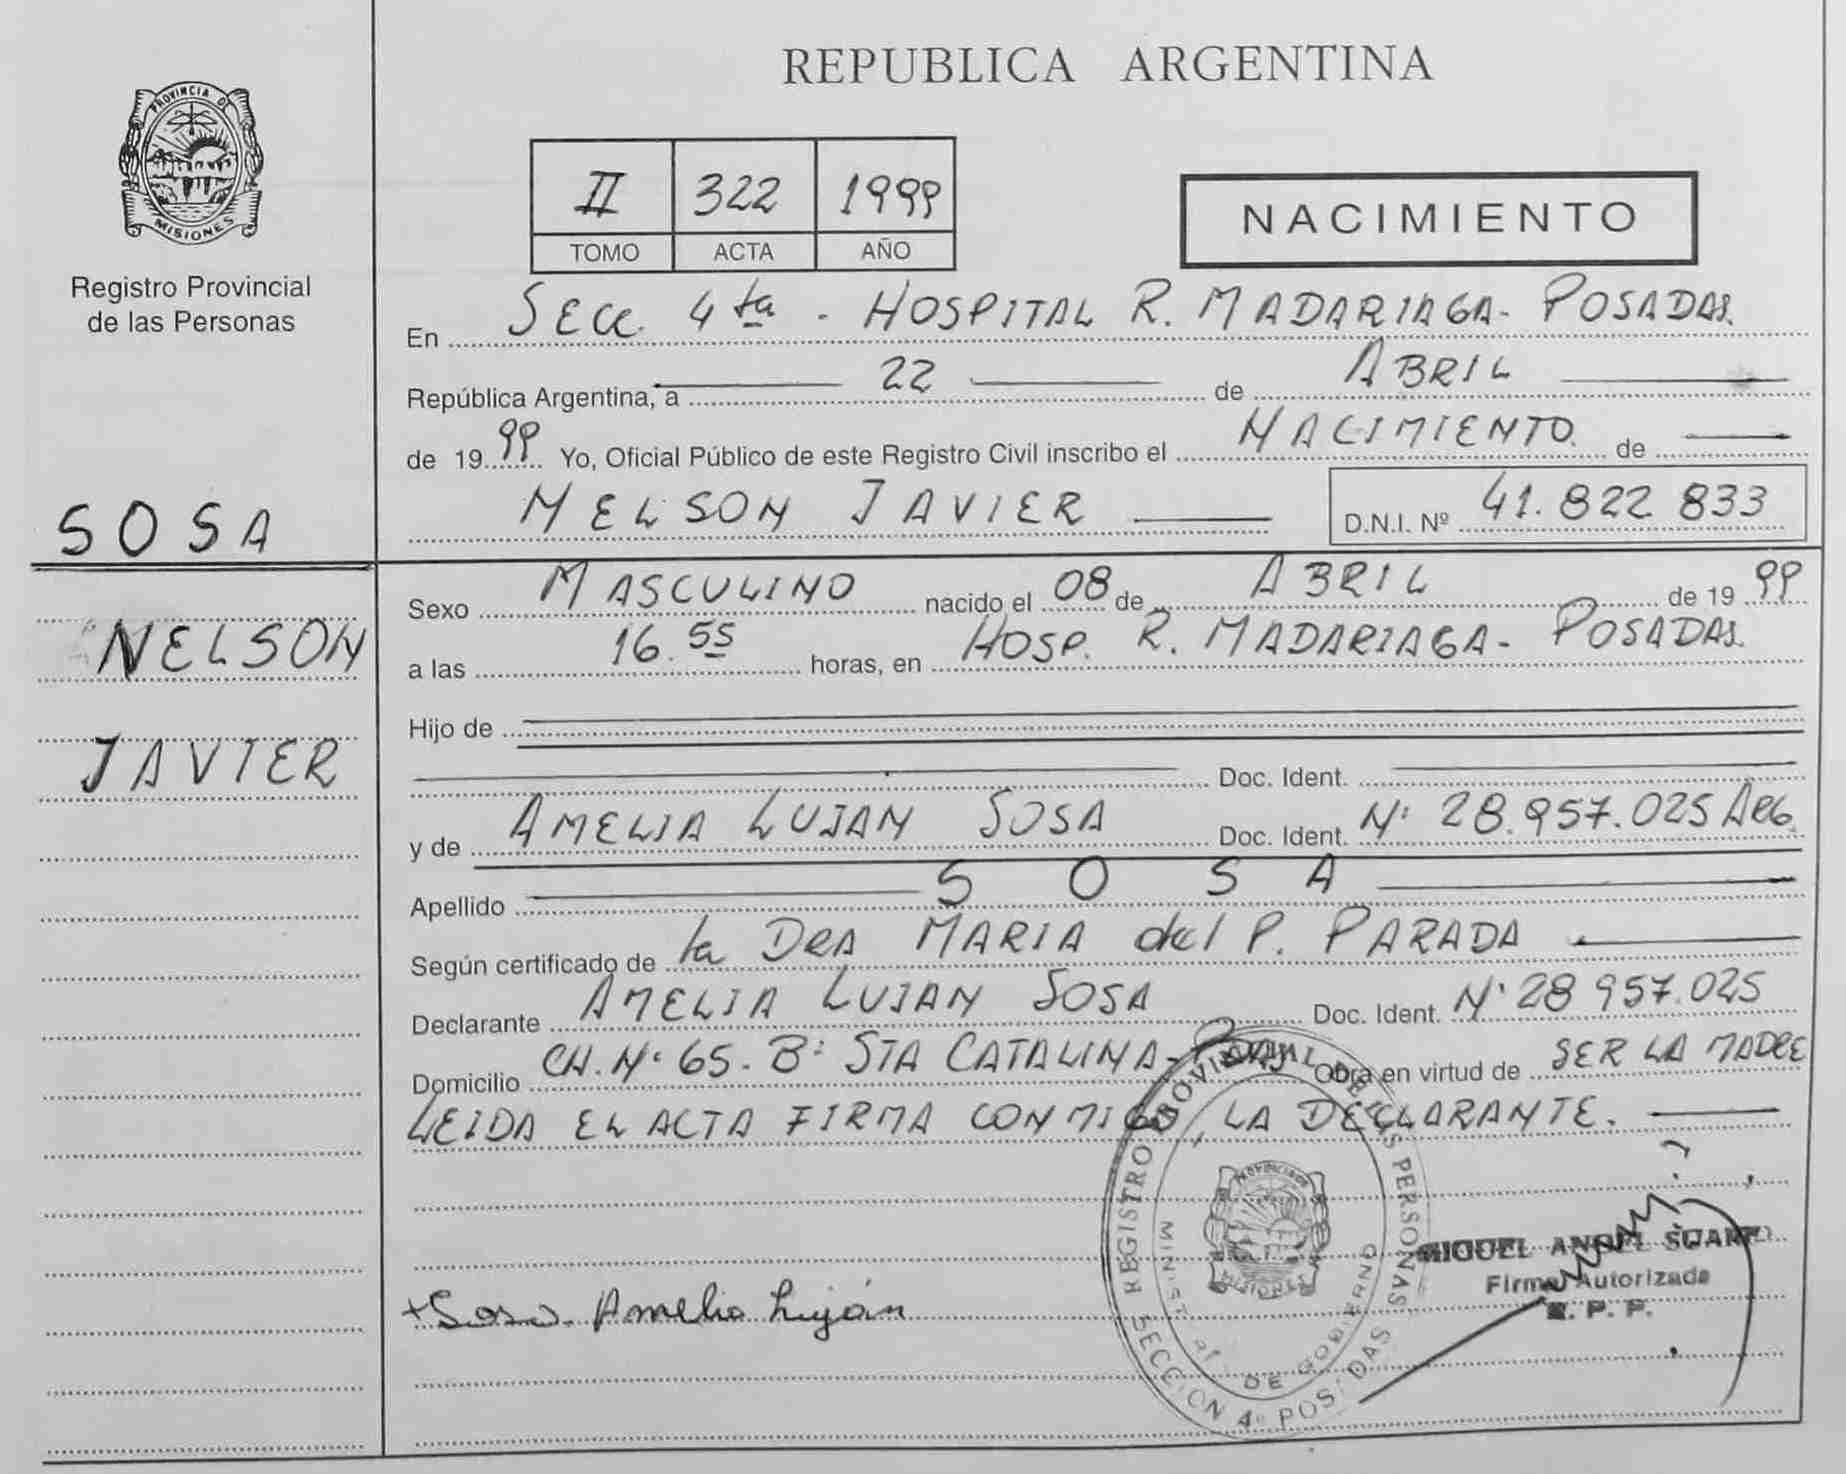 REPUBLICA ARGENTINA
PROVINCIA DE
MISIONES
Registro Provincial
de las Personas
II 322 1999
TOMO ACTA AÑO
NACIMIENTO
En Secc. 4ta - HOSPITAL R. MADARIAGA - POSADAS.
República Argentina, a 22 de ABRIL
de 1999 Yo, Oficial Público de este Registro Civil inscribo el NACIMIENTO. de
NELSON JAVIER D.N.I. Nº 41.822 833
SOSA
NELSON
JAVIER
Sexo MASCULINO nacido el 08 de ABRIL de 1999
a las 16.55 horas, en HOSP. R. MADARIAGA - POSADAS.
Hijo de
Doc. Ident.
y de AMELIA LUJAN SOSA Doc. Ident. Nº 28.957.025 ARG.
Apellido SOSA
Según certificado de la DRA MARIA del P. PARADA
Declarante AMELIA LUJAN SOSA Doc. Ident. Nº 28 957.025
Domicilio CH. Nº 65. Bº STA CATALINA - Obra en virtud de SER LA MADRE
LEIDA EL ACTA FIRMA CONMIGO, LA DECLARANTE.
REGISTRO PROVINCIAL DE LAS PERSONAS
DE GOBIERNO
SECCION 4º POSADAS
MISIONES
MIGUEL ANGEL
Firma Autorizada
R. P. P.
+Sosa Amelia Luján